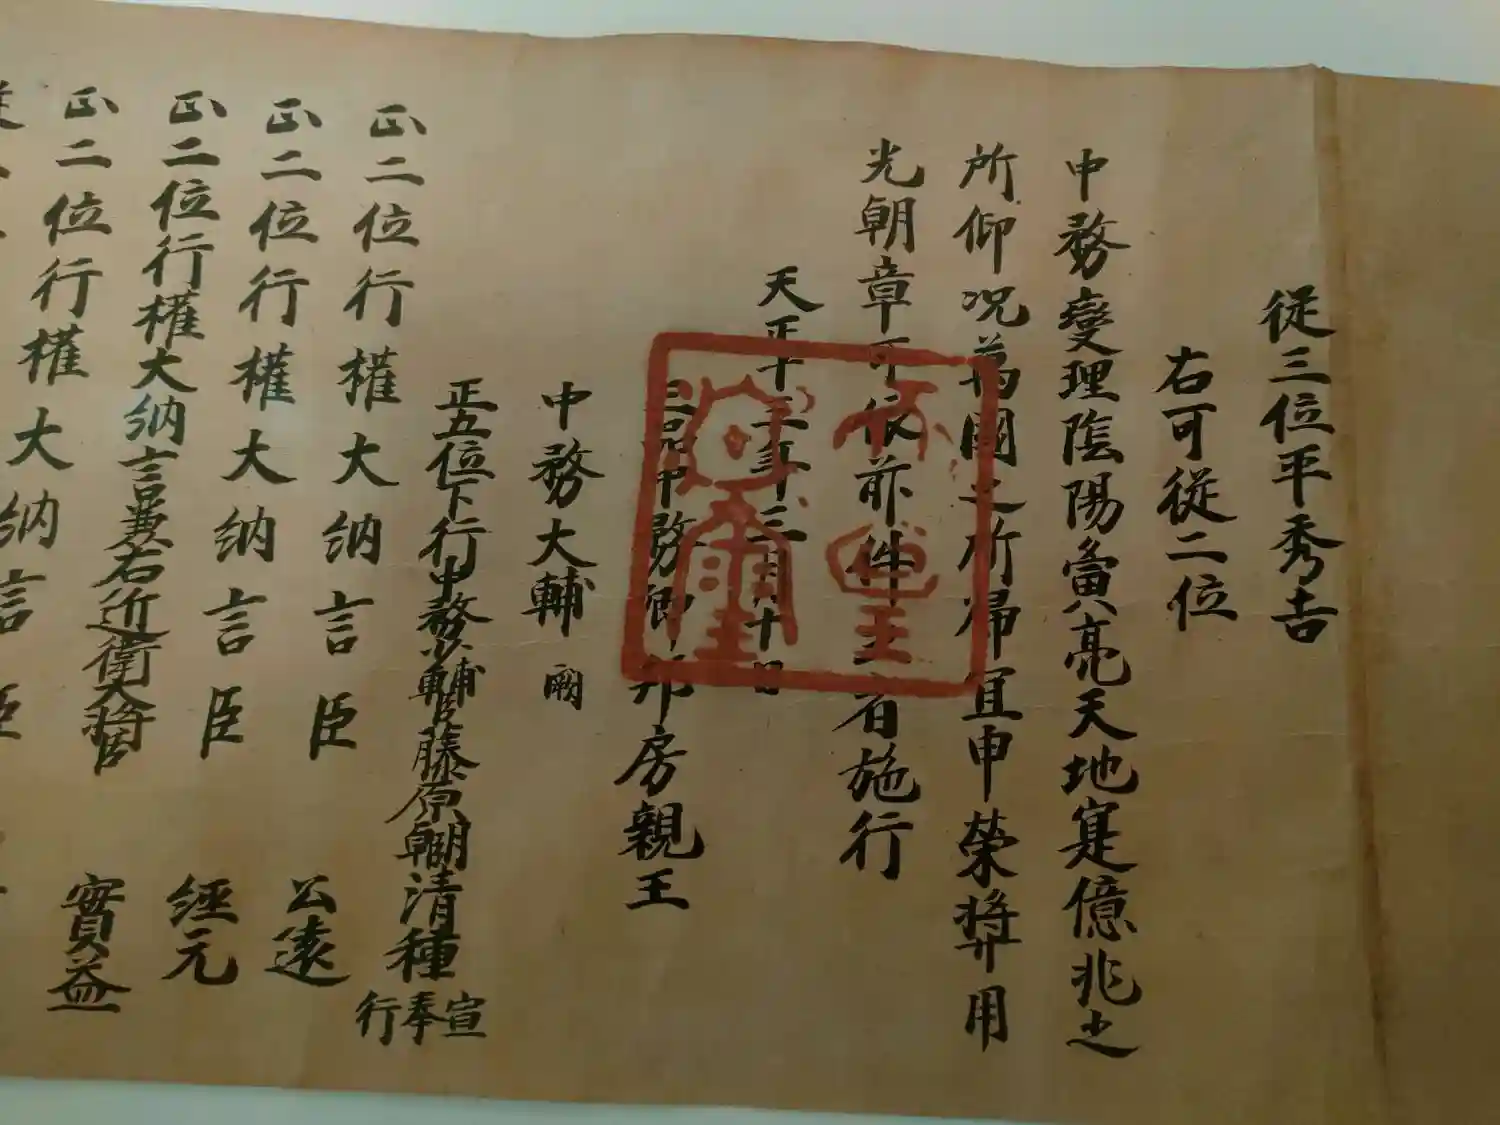 従三位平秀吉
右可従二位
中務燮理陰陽寅亮天地寔億兆之
所仰況萬國之所帰宜申榮奨用
光朝章可依前件主者施行
天正十三年三月十日
二品中務卿邦房親王
中務大輔闕
正五位下行中務少輔臣藤原朝臣清種
宣奉行
正二位行権大納言臣公遠
正二位行権大納言臣經元
正二位行権大納言兼右近衛大将臣實益
正二位行権大納言臣